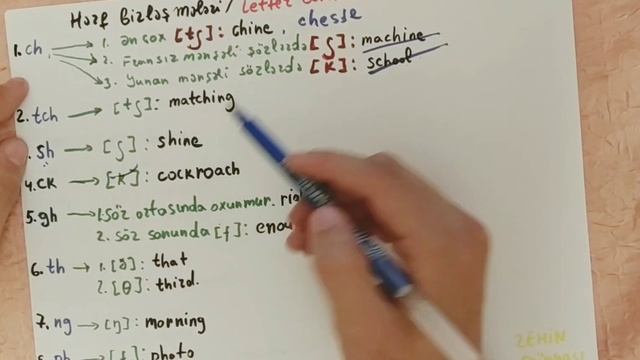 Hərf birləşmələri / Letter
1. ch, 1. ən çox [tʃ]: chine, chesse
2. Fransız mənşəli sözlərdə [ʃ]: machine
3. Yunan mənşəli sözlərdə [K]: school
2. tch → [tʃ]: matching
. Sh → [ʃ]: shine
4. CK → [K]: cockroach
5. gh → 1. söz ortasında oxunmur.
2. söz sonunda [f]:
6. th → 1. [ð]: that
2. [θ]: third.
7. ng → [ŋ]: morning
ph → [f]: photo
ZEHİN